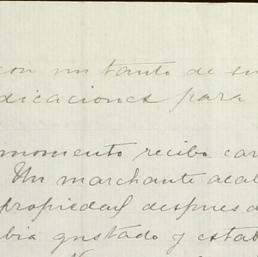 con un tanto de su
dicaciones para
momento recibo car
Un marchante acab
propiedad despues d
bia gustado y estab